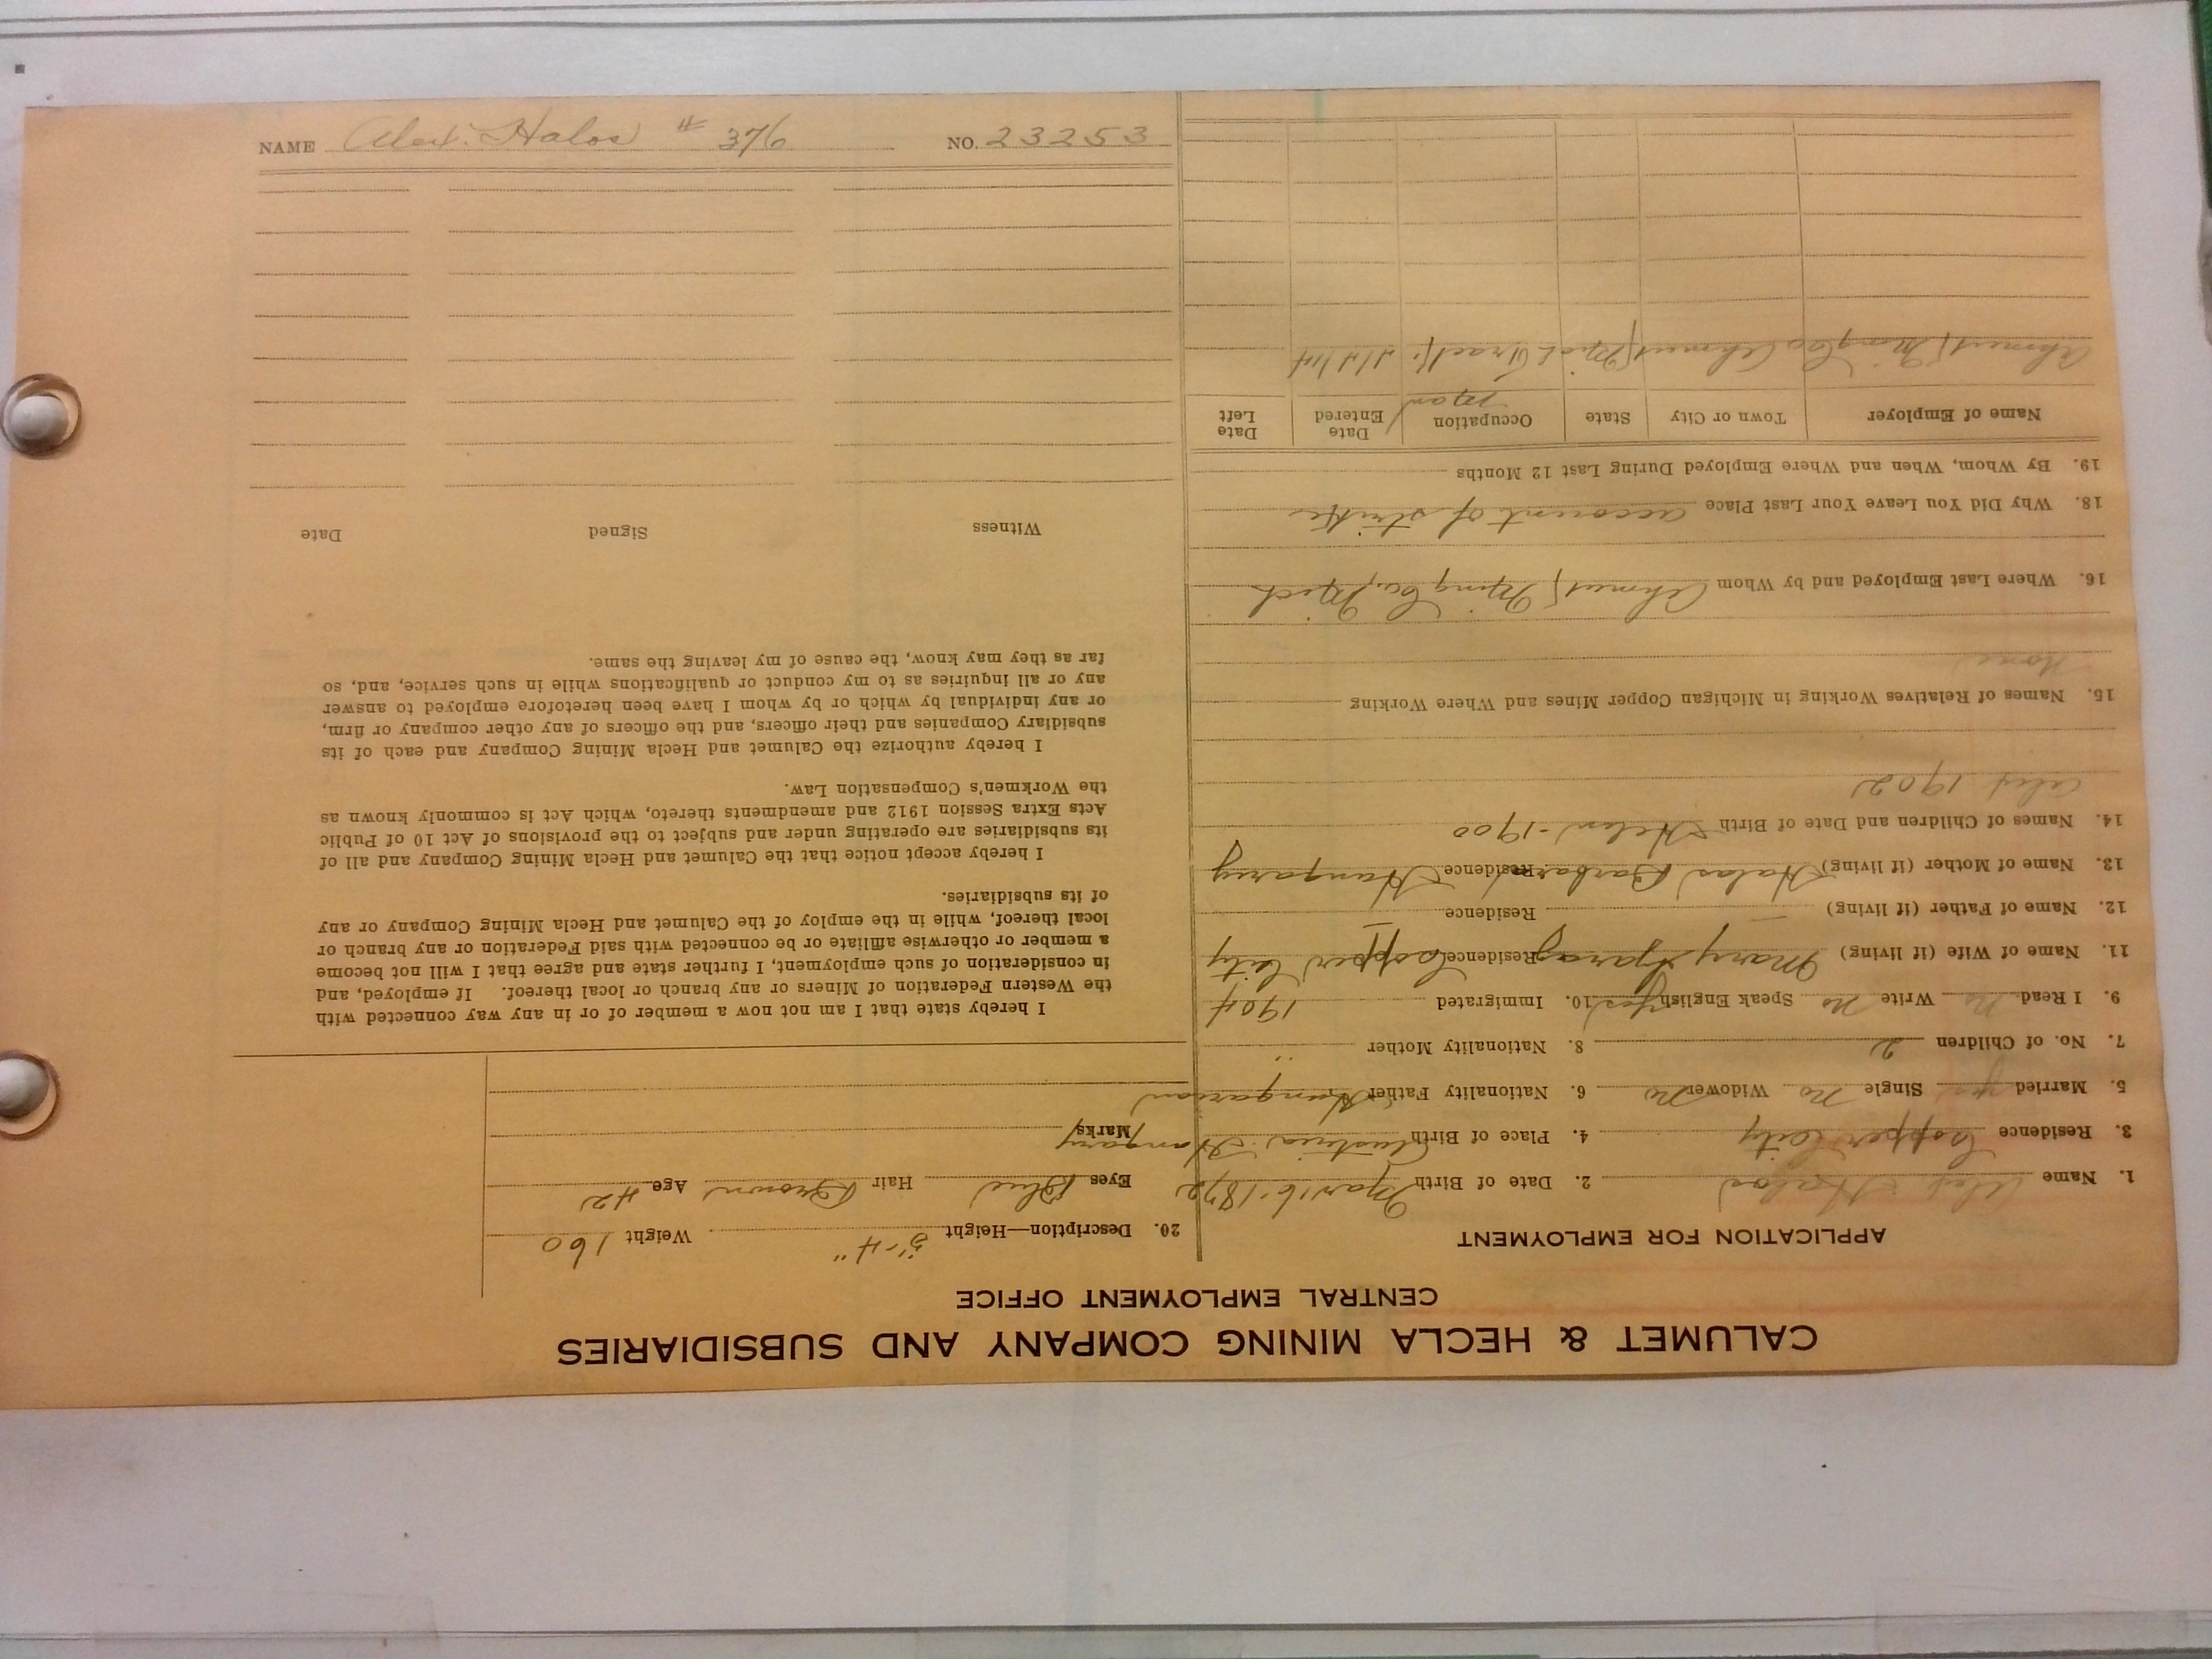 CALUMET & HECLA MINING COMPANY AND SUBSIDIARIES
CENTRAL EMPLOYMENT OFFICE
APPLICATION FOR EMPLOYMENT
1. Name Alex Halos 2. Date of Birth Mar 16-1872
3. Residence Copper City 4. Place of Birth Austria Hungary
5. Married yes Single no Widower no 6. Nationality Father Hungarian
7. No. of Children 2 8. Nationality Mother "
9. I Read no Write no Speak English yes 10. Immigrated 1904
11. Name of Wife (if living) Mary Residence Copper City
12. Name of Father (if living) — Residence
13. Name of Mother (if living) Halos Barbara Residence Hungary
14. Names of Children and Date of Birth Helen - 1900
Alex 1902
15. Names of Relatives Working in Michigan Copper Mines and Where Working
None
16. Where Last Employed and by Whom Ahmeek Ming Co, Mich
18. Why Did You Leave Your Last Place account of strike
19. By Whom, When and Where Employed During Last 12 Months
Name of Employer Town or City State Occupation Date Entered Date Left
Ahmeek Ming Co Ahmeek Mich Track
man
20. Description—Height 5'-4" Weight 160
Eyes Blue Hair Brown Age 42
Marks
I hereby state that I am not now a member of or in any way connected with
the Western Federation of Miners or any branch or local thereof. If employed, and
in consideration of such employment, I further state and agree that I will not become
a member or otherwise affiliate or be connected with said Federation or any branch or
local thereof, while in the employ of the Calumet and Hecla Mining Company or any
of its subsidiaries.
I hereby accept notice that the Calumet and Hecla Mining Company and all of
its subsidiaries are operating under and subject to the provisions of Act 10 of Public
Acts Extra Session 1912 and amendments thereto, which Act is commonly known as
the Workmen's Compensation Law.
I hereby authorize the Calumet and Hecla Mining Company and each of its
subsidiary Companies and their officers, and the officers of any other company or firm,
or any individual by which or by whom I have been heretofore employed to answer
any or all inquiries as to my conduct or qualifications while in such service, and, so
far as they may know, the cause of my leaving the same.
Witness Signed Date
NAME Alex. Halos # 376 NO. 23253